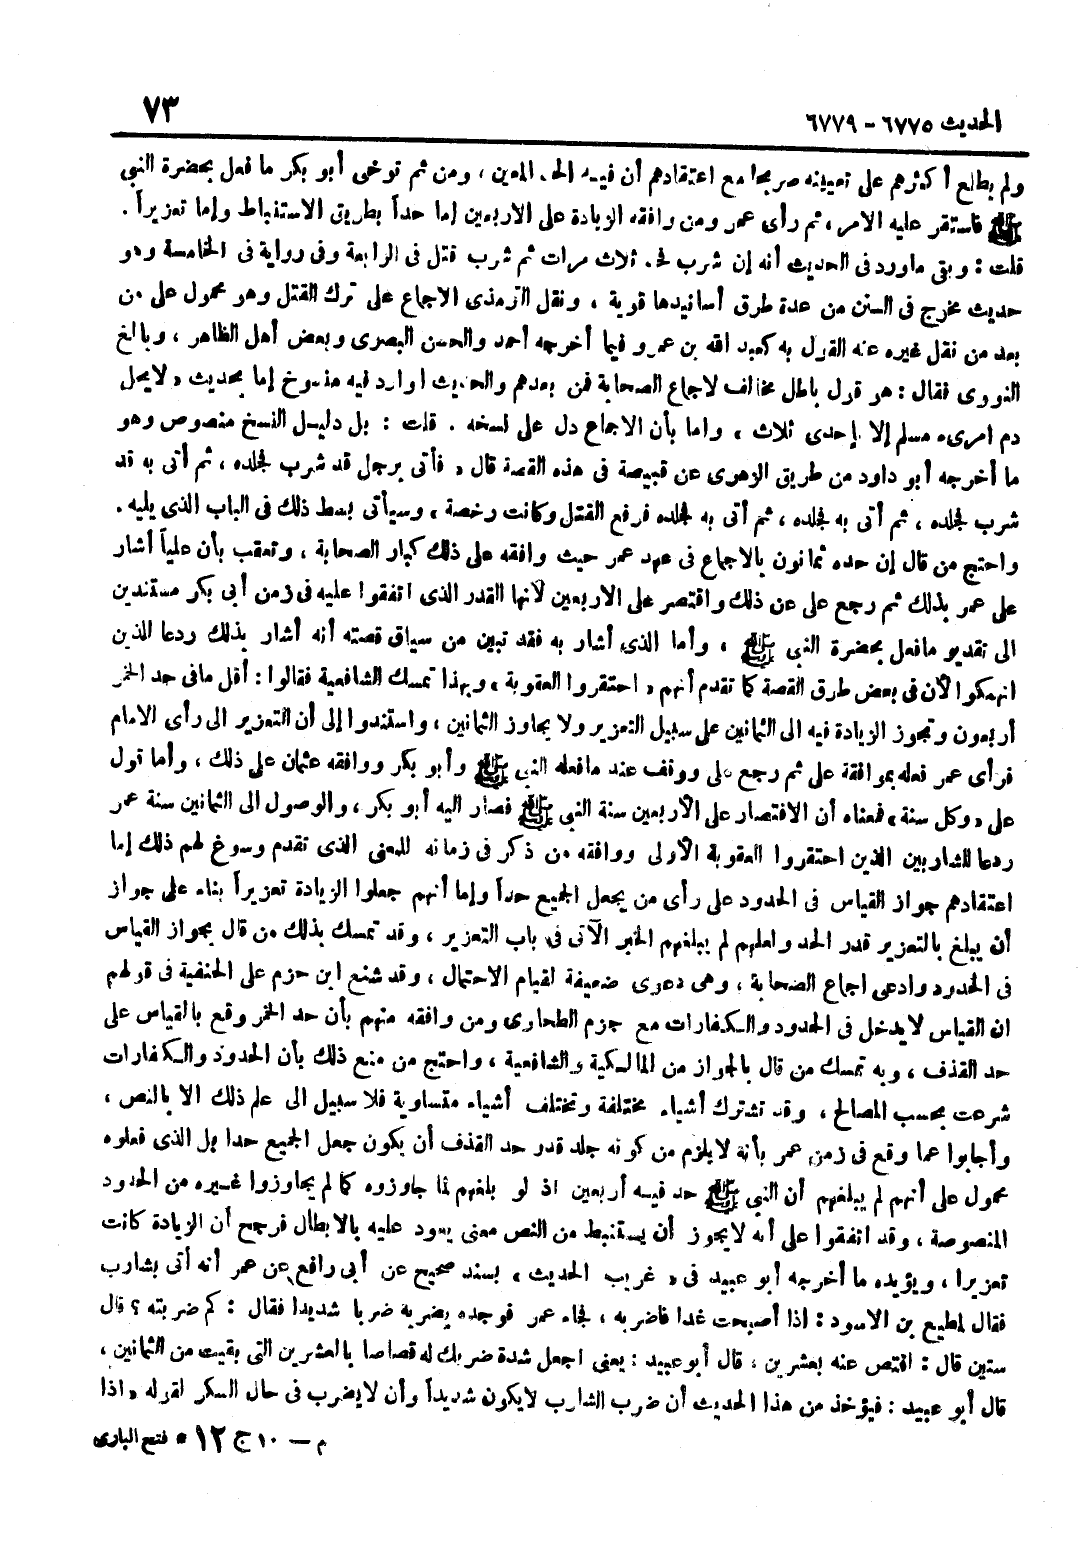 الحديث ٦٧٧٥ - ٦٧٧٩ ٧٣
ولم يطلع أكثرهم على تعيينه صريحا مع اعتقادهم أن فيه الحد المعين ، ومن ثم توخى أبو بكر ما فعل بحضرة النبي
ﷺ فاستقر عليه الامر ، ثم رأى عمر ومن وافقه الزيادة على الاربعين إما حداً بطريق الاستنباط وإما تعزيراً .
قلت : وبقى ماورد فى الحديث أنه إن شرب فحد ثلاث مرات ثم شرب قتل فى الرابعة وفى رواية فى الخامسة وهو
حديث مخرج فى السنن من عدة طرق أسانيدها قوية ، ونقل الترمذى الاجماع على ترك القتل وهو محمول على من
بعد من نقل غيره عنه القول به كعبد الله بن عمرو فيما أخرجه أحمد والحسن البصرى وبعض أهل الظاهر ، وبالغ
النووى فقال : هو قول باطل مخالف لاجماع الصحابة فمن بعدهم والحديث الوارد فيه منسوخ إما بحديث « لايحل
دم امرىء مسلم إلا بإحدى ثلاث » واما بأن الاجماع دل على نسخه . قلت : بل دليل النسخ منصوص وهو
ما أخرجه أبو داود من طريق الزهرى عن قبيصة فى هذه القصة قال « فأتى برجل قد شرب فجلده ، ثم أتى به قد
شرب فجلده ، ثم أتى به فجلده ، ثم أتى به فجلده فرفع القتل وكانت رخصة » وسيأتى بسط ذلك فى الباب الذى يليه .
واحتج من قال إن حده ثمانون بالاجماع فى عهد عمر حيث وافقه على ذلك كبار الصحابة ، وتعقب بأن علياً أشار
على عمر بذلك ثم رجع على عن ذلك واقتصر على الاربعين لأنها القدر الذى اتفقوا عليه فى زمن أبى بكر مستندين
الى تقدير مافعل بحضرة النبى ﷺ ، وأما الذى أشار به فقد تبين من سياق قصته أنه أشار بذلك ردعا الذين
انهمكوا لأن فى بعض طرق القصة كما تقدم أنهم « احتقروا العقوبة » وبهذا تمسك الشافعية فقالوا : أقل مافى حد الخمر
أربعون وتجوز الزيادة فيه الى الثمانين على سبيل التعزير ولا يجاوز الثمانين ، واستندوا إلى أن التعزير الى رأى الامام
فرأى عمر فعله بموافقة على ثم رجع على ووقف عند مافعله النبى ﷺ وأبو بكر ووافقه عثمان على ذلك ، وأما قول
على « وكل سنة » فمعناه أن الاقتصار على الأربعين سنة النبى ﷺ فصار اليه أبو بكر ، والوصول الى الثمانين سنة عمر
ردعا للشاربين الذين احتقروا العقوبة الأولى ووافقه من ذكر فى زمانه للمعنى الذى تقدم وسوغ لهم ذلك إما
اعتقادهم جواز القياس فى الحدود على رأى من يجعل الجميع حداً وإما أنهم جعلوا الزيادة تعزيراً بناء على جواز
أن يبلغ بالتعزير قدر الحد ولعلهم لم يبلغهم الخبر الآتى فى باب التعزير ، وقد تمسك بذلك من قال بجواز القياس
فى الحدود وادعى اجماع الصحابة ، وهى دعوى ضعيفة لقيام الاحتمال ، وقد شنع ابن حزم على الحنفية فى قولهم
ان القياس لايدخل فى الحدود والكفارات مع جزم الطحاوى ومن وافقه منهم بأن حد الخمر وقع بالقياس على
حد القذف ، وبه تمسك من قال بالجواز من المالكية والشافعية ، واحتج من منع ذلك بأن الحدود والكفارات
شرعت بحسب المصالح ، وقد تشترك أشياء مختلفة وتختلف أشياء متساوية فلا سبيل الى علم ذلك الا بالنص ،
وأجابوا عما وقع فى زمن عمر بأنه لايلزم من كونه جلد قدر حد القذف أن يكون جعل الجميع حدا بل الذى فعلوه
محمول على أنهم لم يبلغهم أن النبى ﷺ حد فيه أربعين اذ لو بلغهم لما جاوزوه كما لم يجاوزوا غيره من الحدود
المنصوصة ، وقد اتفقوا على أنه لايجوز أن يستنبط من النص معنى يعود عليه بالابطال فرجح أن الزيادة كانت
تعزيرا ، ويؤيده ما أخرجه أبو عبيد فى « غريب الحديث » بسند صحيح عن أبى رافع عن عمر أنه أتى بشارب
فقال لمطيع بن الاسود : اذا أصبحت غدا فاضربه ، فجاء عمر فوجده يضربه ضربا شديدا فقال : كم ضربته ؟ قال
ستين قال : اقتص عنه بعشرين ، قال أبو عبيد : يعنى اجعل شدة ضربك له قصاصا بالعشرين التى بقيت من الثمانين ،
قال أبو عبيد : فيؤخذ من هذا الحديث أن ضرب الشارب لايكون شديداً وأن لايضرب فى حال السكر لقوله « اذا
م - ١٠ ج ١٢ * فتح البارى